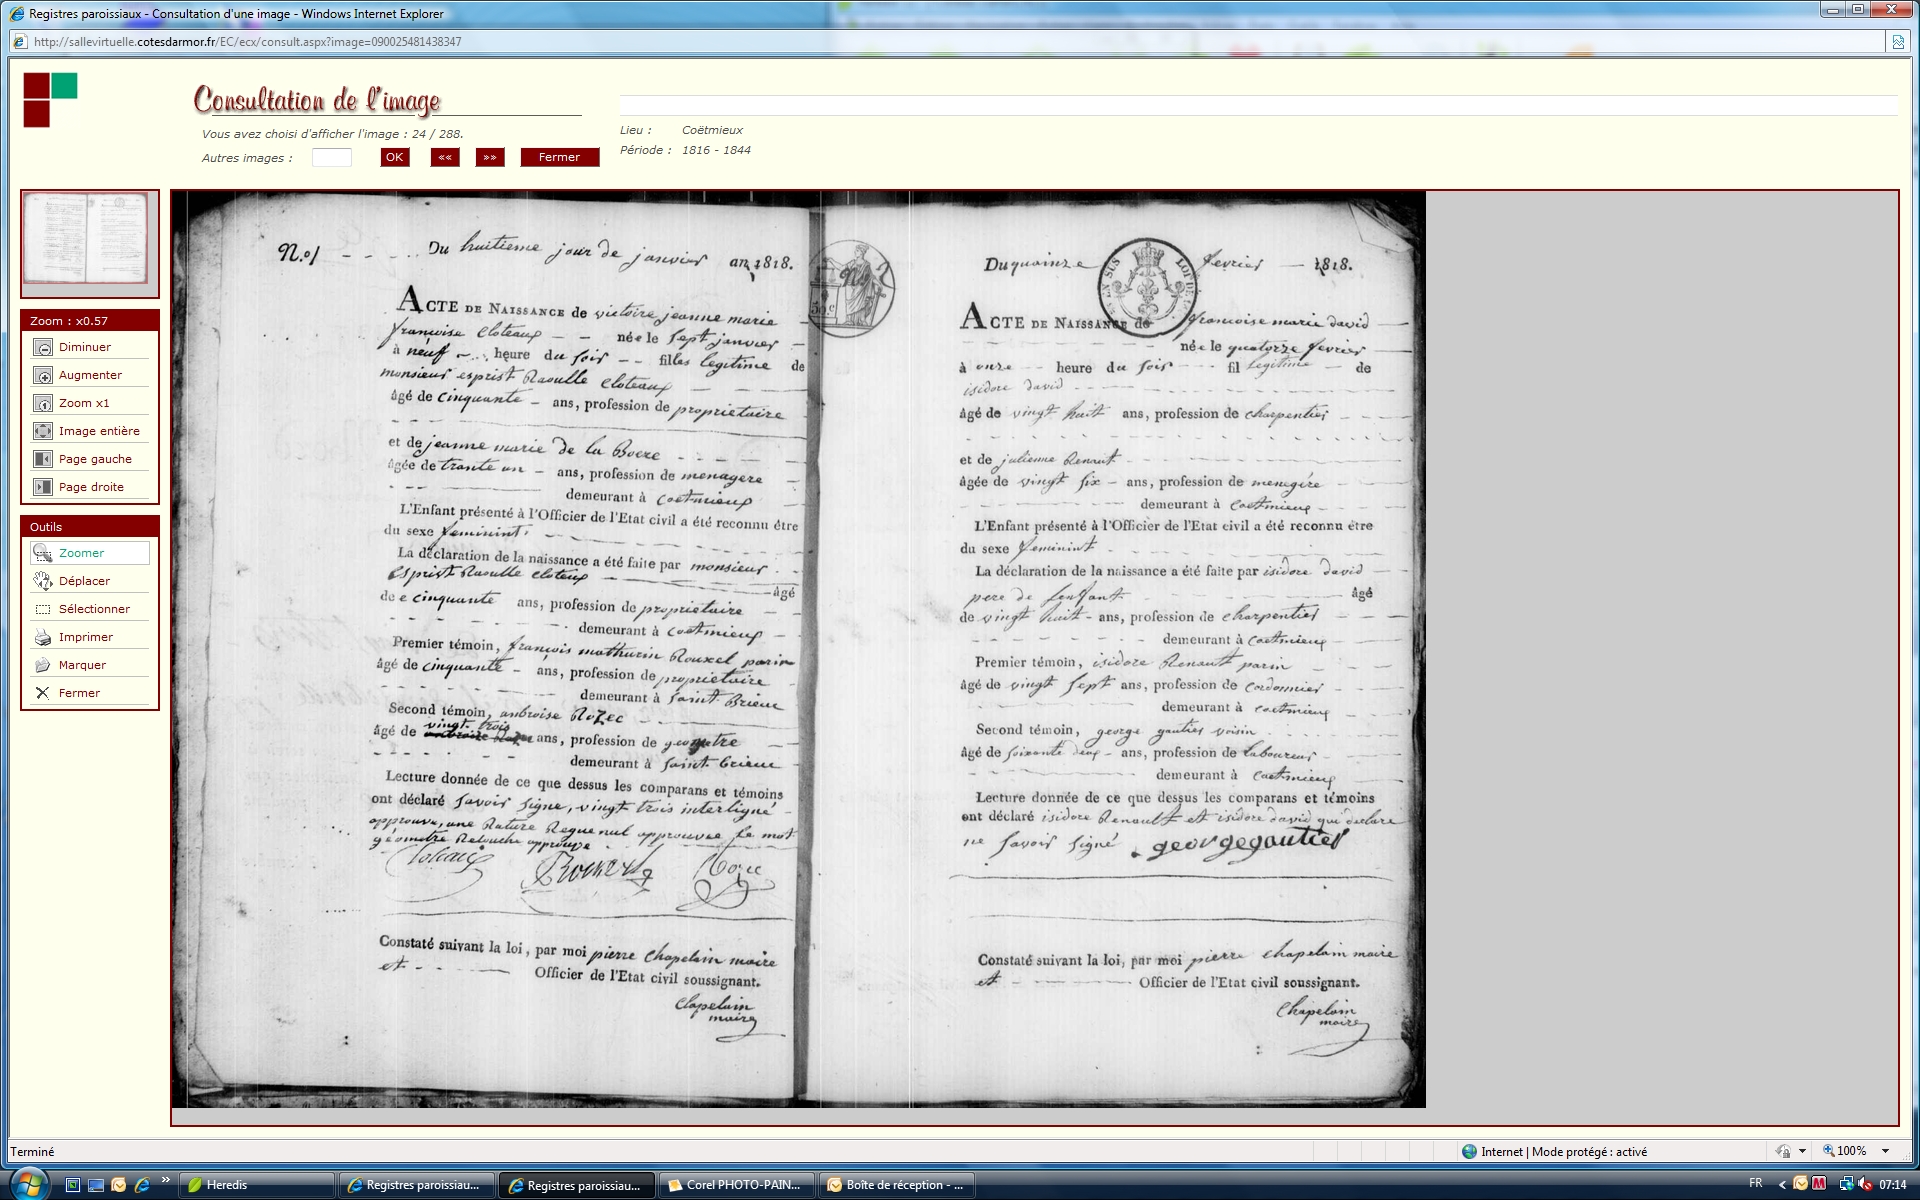 Registres paroissiaux - Consultation d'une image - Windows Internet Explorer
http://sallevirtuelle.cotesdarmor.fr/EC/ecx/consult.aspx?image=090025481438347
Consultation de l'image
Vous avez choisi d'afficher l'image : 24 / 288.
Autres images :
OK
««
»»
Fermer
Lieu : Coëtmieux
Période : 1816 - 1844
Zoom : x0.57
Diminuer
Augmenter
Zoom x1
Image entière
Page gauche
Page droite
Outils
Zoomer
Déplacer
Sélectionner
Imprimer
Marquer
Fermer
N.o1 Du huitieme jour de janvier an 1818.
ACTE DE NAISSANCE de victoire jeanne marie
françoise cloteaux née le sept janvier
à neuf heure du soir filles legitime de
monsieur esprist Raoulle cloteaux
âgé de cinquante ans, profession de proprietaire
et de jeanne marie de la Boexe
âgée de trante un ans, profession de menagere
demeurant à coetmieux
L'Enfant présenté à l'Officier de l'Etat civil a été reconnu être
du sexe feminint.
La déclaration de la naissance a été faite par monsieur
Esprist Raoulle cloteux âgé
de cinquante ans, profession de propriétaire
demeurant à coetmieux
Premier témoin, francois mathurin Rouxel parin
âgé de cinquante ans, profession de propriétaire
demeurant à saint Brieuc
Second témoin, anbroise Rozec
vingt trois
âgé de ans, profession de geometre
demeurant à saint brieuc
Lecture donnée de ce que dessus les comparans et témoins
ont déclaré savoir signe, vingt trois interligné
approuve, une Rature Regue nul approuvee le mot
géometre Retouche approuve
Constaté suivant la loi, par moi pierre chapelain maire
et Officier de l'Etat civil soussignant.
Chapelain
maire
50 c
Du quainze fevrier 1818.
ACTE DE NAISSANCE de francoise marie david
née le quatorze fevrier
à onze heure du soir fil legitime de
isidore david
âgé de vingt huit ans, profession de charpentier
et de julienne Renaut
âgée de vingt six ans, profession de menegére
demeurant à coetmieux
L'Enfant présenté à l'Officier de l'Etat civil a été reconnu être
du sexe feminint
La déclaration de la naissance a été faite par isidore david
pere de lenfant âgé
de vingt huit ans, profession de charpentier
demeurant à coetmieux
Premier témoin, isidore Renault parin
âgé de vingt sept ans, profession de cordonnier
demeurant à coetmieux
Second témoin, george gautier voisin
âgé de soixante deux ans, profession de laboureur
demeurant à coetmieux
Lecture donnée de ce que dessus les comparans et témoins
ont déclaré isidore Renault et isidore david qui declare
ne savoir signé georgegautier
Constaté suivant la loi, par moi pierre chapelain maire
et Officier de l'Etat civil soussignant.
Chapelain
maire
Terminé
Internet | Mode protégé : activé
100%
Heredis
Registres paroissiau...
Registres paroissiau...
Corel PHOTO-PAIN...
Boîte de réception - ...
FR
07:14